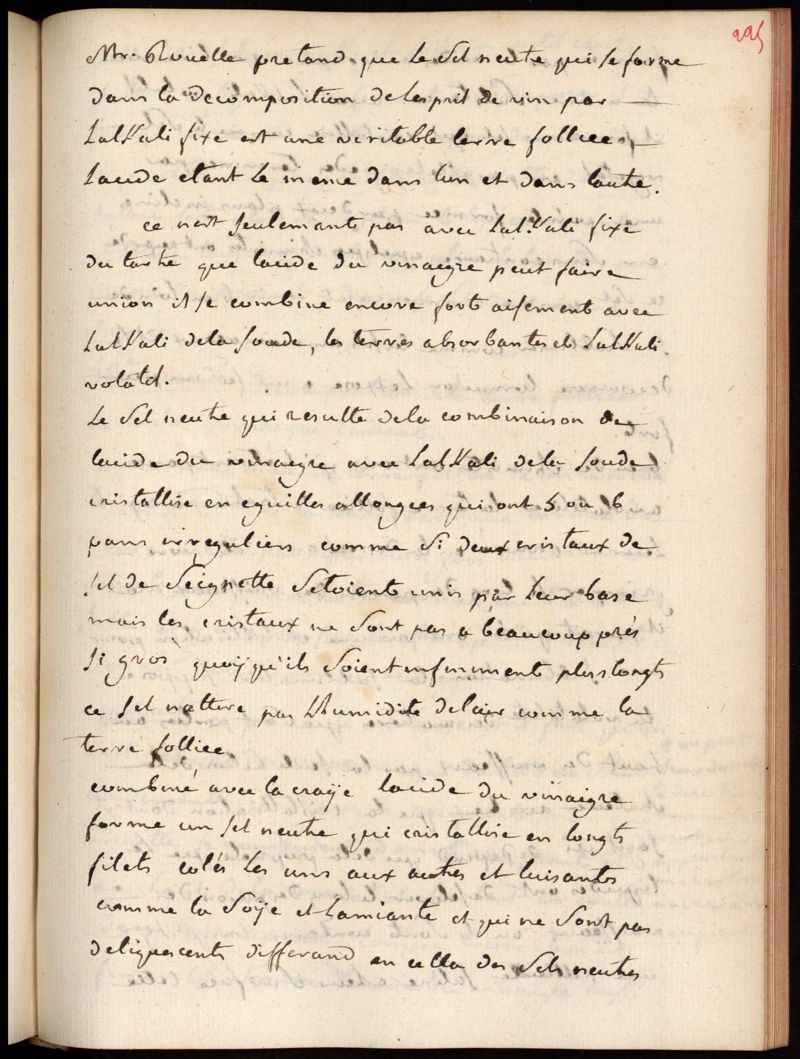 225
Mr. Rouelle pretand que le Sel neutre qui se forme
dans la decomposition de lesprit de vin par
LalKali fixe est une veritable terre folliée,
Lacide etant le meme dans lun et dans lautre.
ce nest seulemant pas avec LalKali fixe
du tartre que lacide du vinaigre peut faire
union il se combine encore fort aisement avec
LalKali de la soude, les terres absorbantes et LalKali
volatil.
Le Sel neutre qui resulte de la combinaison de
lacide du vinaigre avec LalKali de la soude
cristallise en eguilles allongees qui ont 5 ou 6
pans irreguliers comme Si deux cristaux de
sel de Seignette Setoient unis par leur base
mais les cristaux ne sont pas a beaucoup prés
si gros quoÿqu'ils Soient infiniment plus longts
ce sel nattire pas Lhumidité de lair comme la
terre folliee
combiné avec la craÿe lacide du vinaigre
forme un sel neutre qui cristallise en longts
filets colés les uns aux autres et luisants
comme la Soÿe et Lamiante et qui ne Sont pas
deliquescents differand en cella des Sels neutres